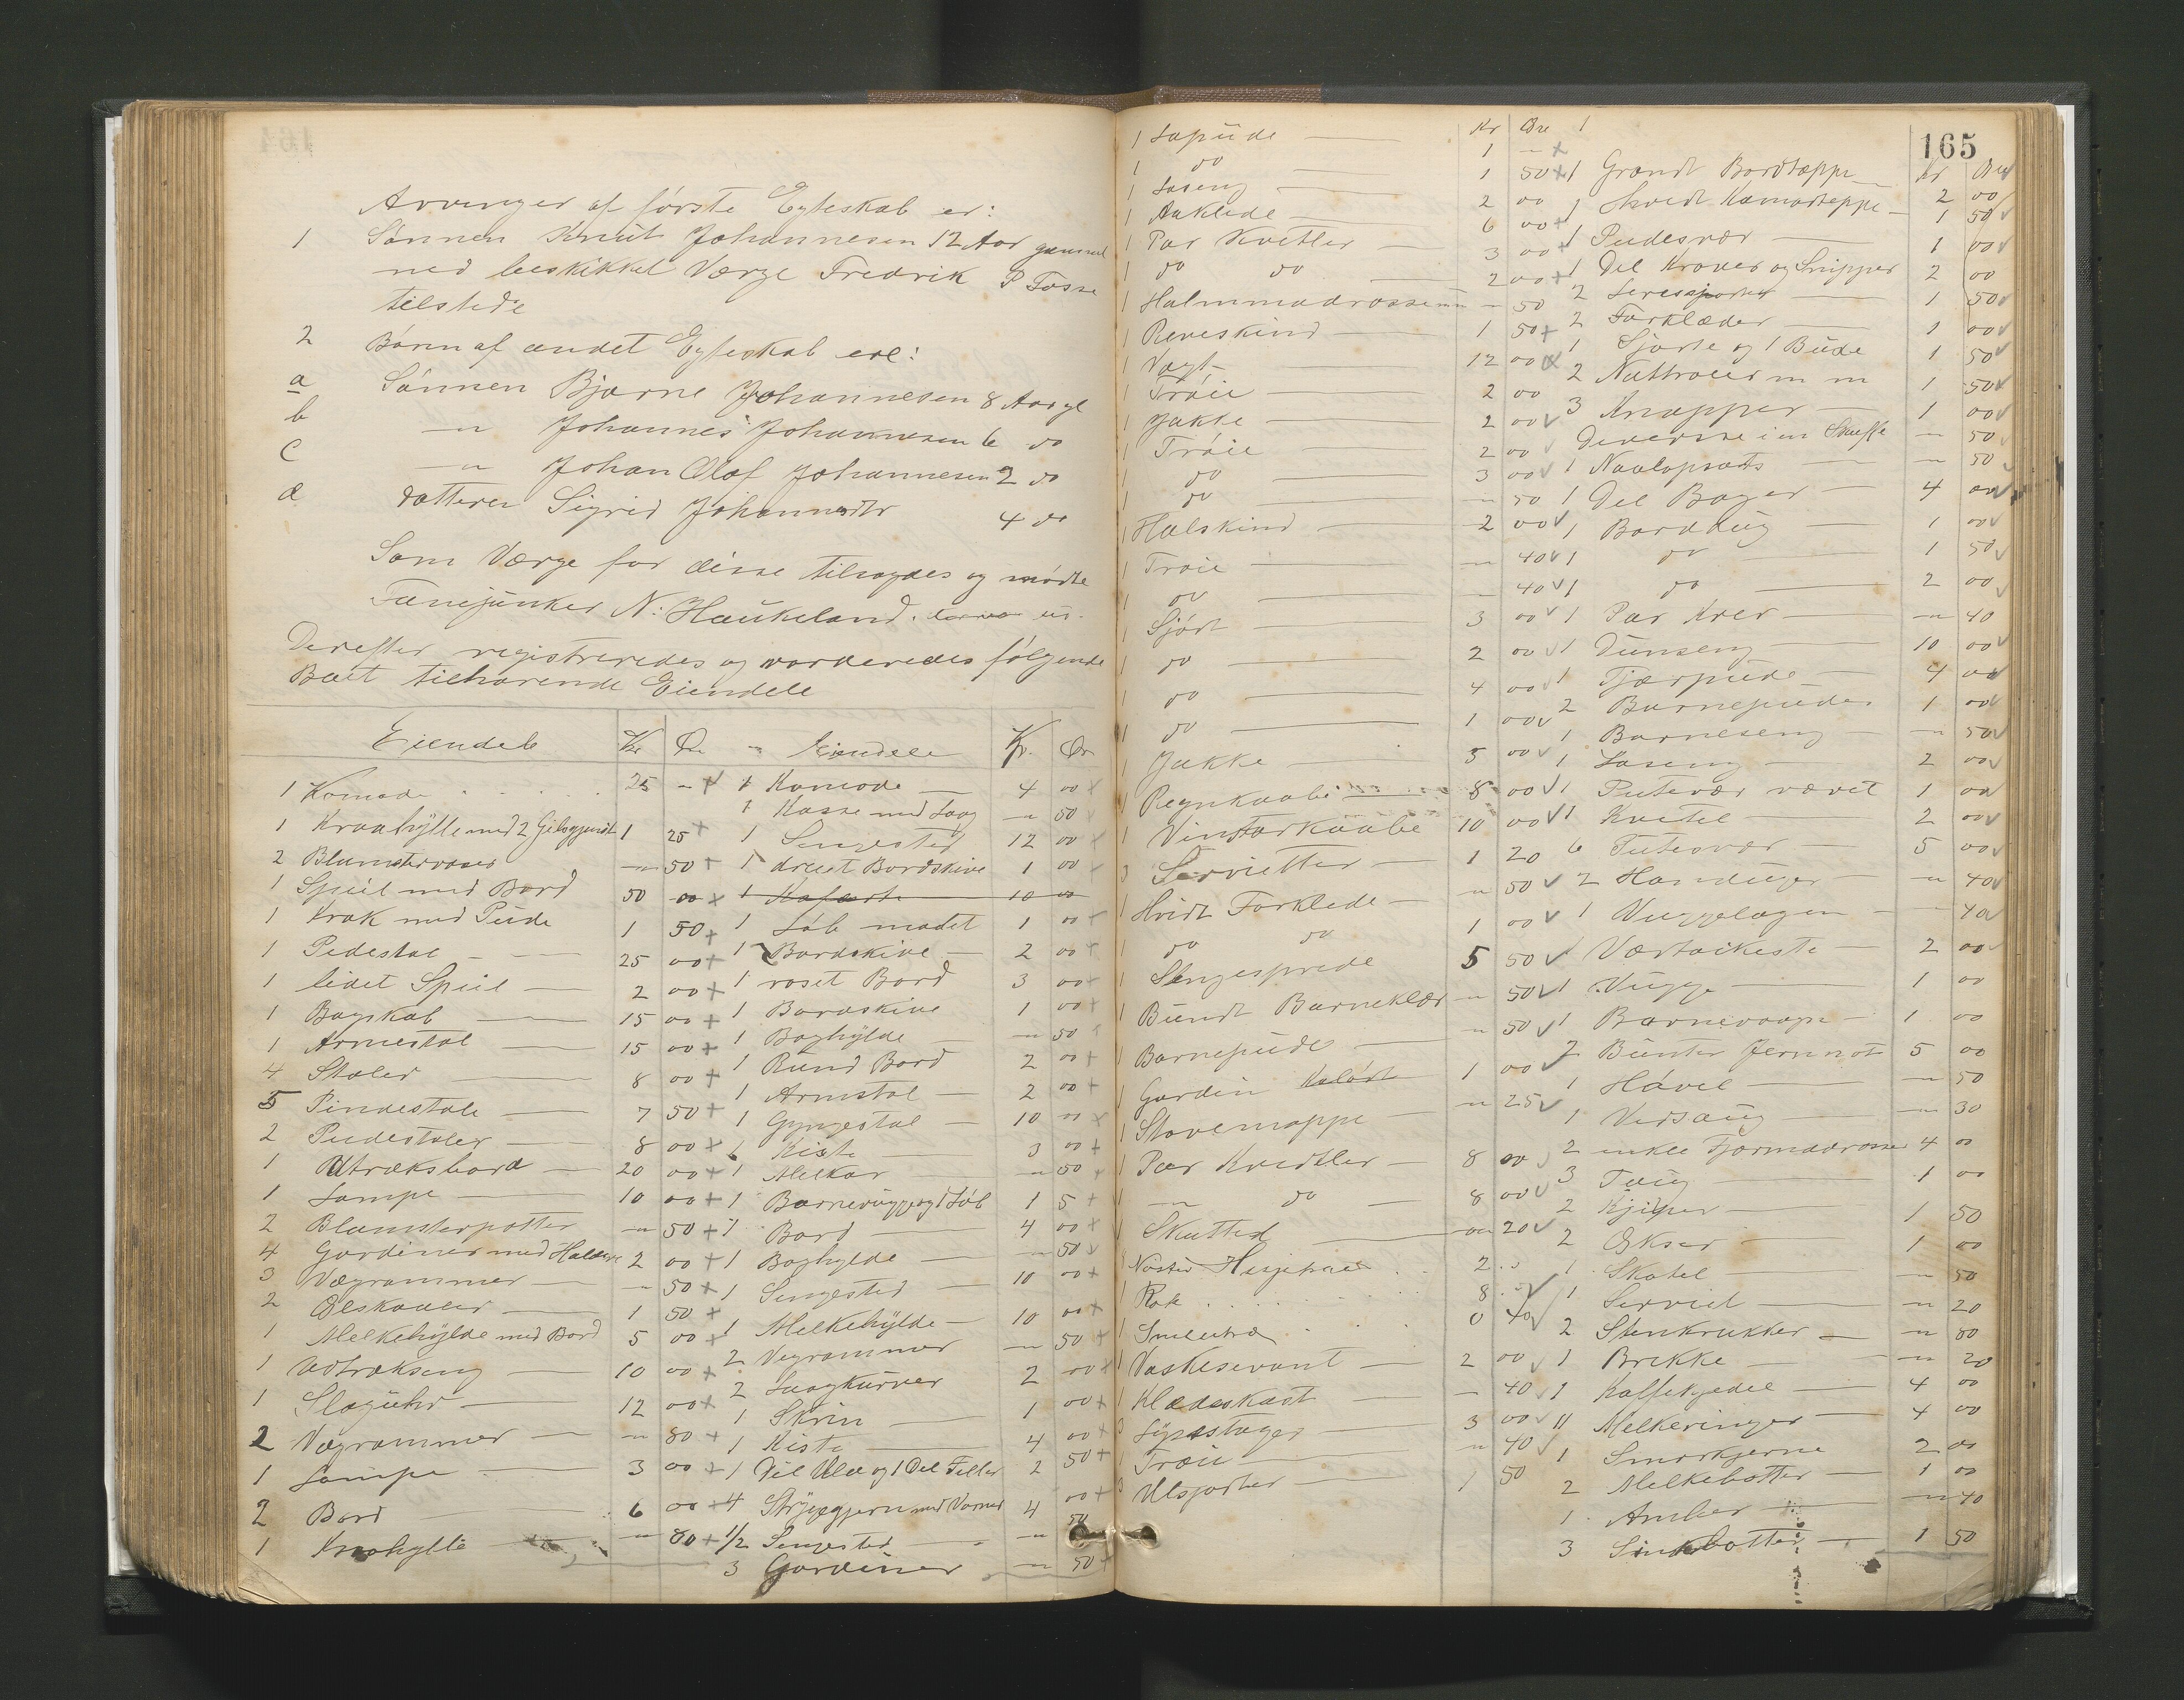 Arvinger af første Egteskab er:
1 Sønnen Knut Johannesen 12 Aar gammel
med beskikket Værge Fredrik P Fosse
tilstede
2 Børn af andet Egteskab ere:
a Sønnen Bjarne Johannesen 8 Aar gl
b —"— Johannes Johannesen 6 do
c —"— Johan Olaf Johannesen 2 do
d datteren Sigrid Johannesdtr 4 do
Som Værge for disse tilsagdes og mødte
Fanejunker N. Haukeland.
Derefter registreredes og vorderedes følgende
Boet tilhørende Eiendele
Eiendele Kr Øre
1 Komode 25 -
1 Kraahylle med 2 1 25
2 Blomstervaser - 50
1 Speil med Bord 50 00
1 Krak med Pude 1 50
1 Pidestal 25 00
1 lidet Speil 2 00
1 Bogskab 15 00
1 Armestol 15 00
4 Stoler 8 00
5 Pindestole 7 50
2 Pudestoler 8 00
1 Utræksbord 20 00
1 Lampe 10 00
2 Blomsterpotter - 50
4 Gardiner med Holdere 2 00
3 Vægrammer - 50
2 Ølskaaler 1 50
1 Melkehylde med Bord 5 00
1 Udtrækseng 10 00
1 Slaguhr 12 00
2 Vægrammer - 80
1 Lampe 3 00
2 Bord 6 00
1 Kraahylle - 80
Eiendele Kr. Ør
1 Komode 4 00
1 Kasse med Laag - 50
1 Sengested 12 00
1 Bordskive 1 00
1 10 00
1 Løb madet 1 00
1 Bordskive 2 00
1 roset Bord 3 00
1 Bordskive 1 00
1 Boghylde - 50
1 Rund Bord 2 00
1 Armstol 2 00
1 Gyngestol 10 00
1 Kiste 3 00
1 Melkar - 50
1 Barnevugge og 1 Løb 1 5
1 Bord 4 00
1 Boghylde - 50
1 Sengested 10 00
1 Melkehylde 10 00
2 Vegrammer - 50
2 Laagkurver 2 00
1 Skrin 1 00
1 Kiste 4 00
1 Del Uld og 1 Del Filler 2 50
4 Strygegjern med Varmer 4 00
1/2 Sengested - 50
3 Gardiner - 50
Kr Øre
1 1 -
1 do 1 50
1 Laseng 2 00
1 Aaklede 6 00
1 Par Kvitler 3 00
1 do do 2 00
1 Halmmadrasse - 50
1 Reveskind 1 50
1 Vægt 12 00
1 Trøie 2 00
1 Jakke 2 00
1 Trøie 2 00
1 do 3 00
1 do - 50
1 Halskind 2 00
1 Trøie - 40
1 do - 40
1 Sjørt 3 00
1 do 2 00
1 do 4 00
1 do 1 00
1 Jakke 5 00
1 Regnkaabe 8 00
1 Vinterkaabe 10 00
3 Servietter 1 20
1 Hvidt Forklede - 50
1 do do 1 00
1 Sengesprede 5 50
1 Bundt Barneklær - 50
1 Barnepude - 50
1 Gardin 1 00
1 Stovemappe - 25
1 Par Kvitler 8 00
1 —"— do 8 00
1 Skuttel - 20
2
1 Rok 8
1 0 40
1 Vaskeservant 2 00
1 Klædeskost - 40
3 Lysestager 3 00
1 Trøie - 40
3 Ulsjorter 1 50
165
Kr Øre
1 Grønt Bordteppe 2 00
1 Hvidt Komodteppe 1 50
1 Pudesvær 1 00
1 Del Kraver og Snipper 2 00
2 1 50
2 Forklæder 1 00
1 Sjorte og 1 Buxe 1 50
2 Nattrøier m m 1 50
3 Knapper 1 00
Deverse i en Skuffe - 50
1 - 50
1 Del Bøger 4 00
1 Borddug 1 00
1 do 1 50
1 do 2 00
1 Par - 40
1 Dunseng 10 00
1 Fjærpude 4 00
2 Barnepuder 1 00
1 Barneseng - 50
1 Laseng 2 00
1 Putevær vævet 1 00
1 Kvitel 2 00
6 Putesvær 5 00
2 Handuger - 40
1 Vuggelagen - 40
1 2 00
1 Vugge 1 00
1 Barnevogn 1 00
2 Bunter 5 00
1 Høvel - 50
1 Vedsaug - 30
2 enkle Fjærmadrasser 4 00
3 Taug 1 00
2 Kjiper 1 50
2 Økser 1 00
1 Skotel - 50
1 - 20
2 Stenkrukker - 80
1 Brikke - 20
1 Kaffekjedel 4 00
11 Melkeringer 4 00
1 Smørkjerne 2 00
2 Melkebøtter 1 00
1 Amber - 40
3 1 50